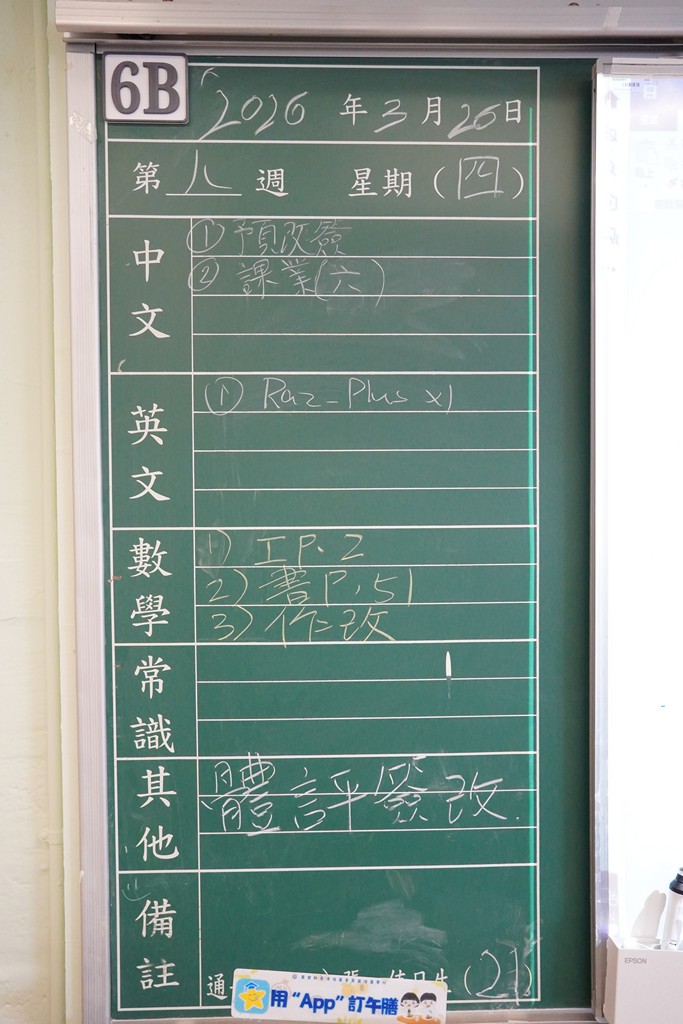 6B
2026 年 3 月 26 日
第 八 週 星期 (四)
中文
① 預改簽
② 課業(六)
英文
① Raz-Plus x1
數學
1) 工P.2
2) 書P.51
3) 作改
常識
其他
體評簽改.
備註
通 值日生 (21)
用“App”訂午膳
EPSON